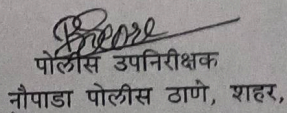 पोलीस उपनिरीक्षक
नौपाडा पोलीस ठाणे, शहर,